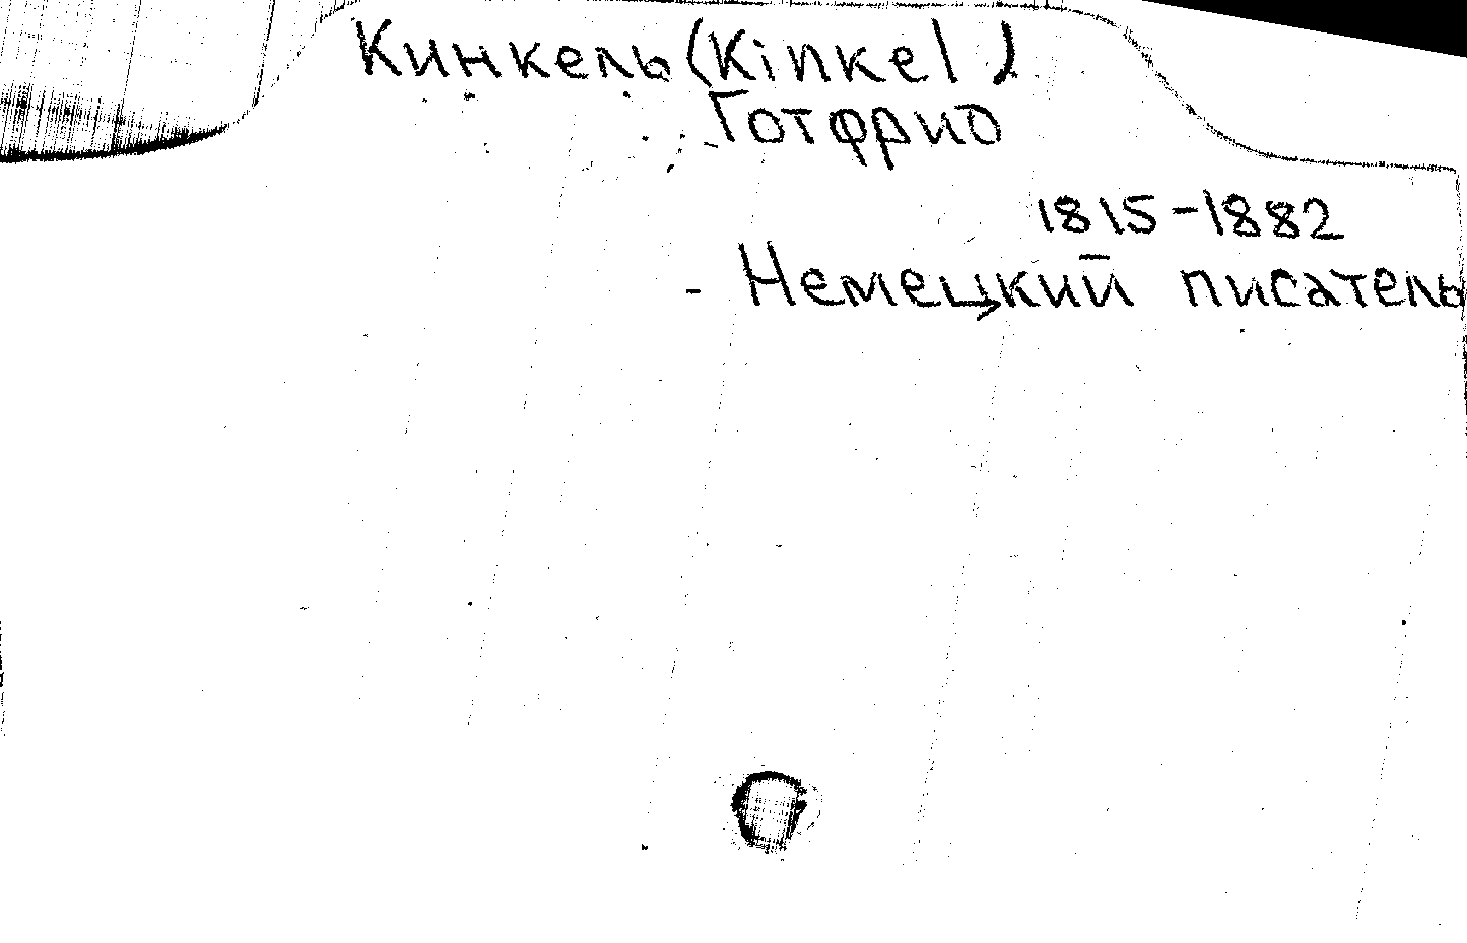 Кинкель (Kinkel)
Готфрид
1815-1882
- Немецкий писатель